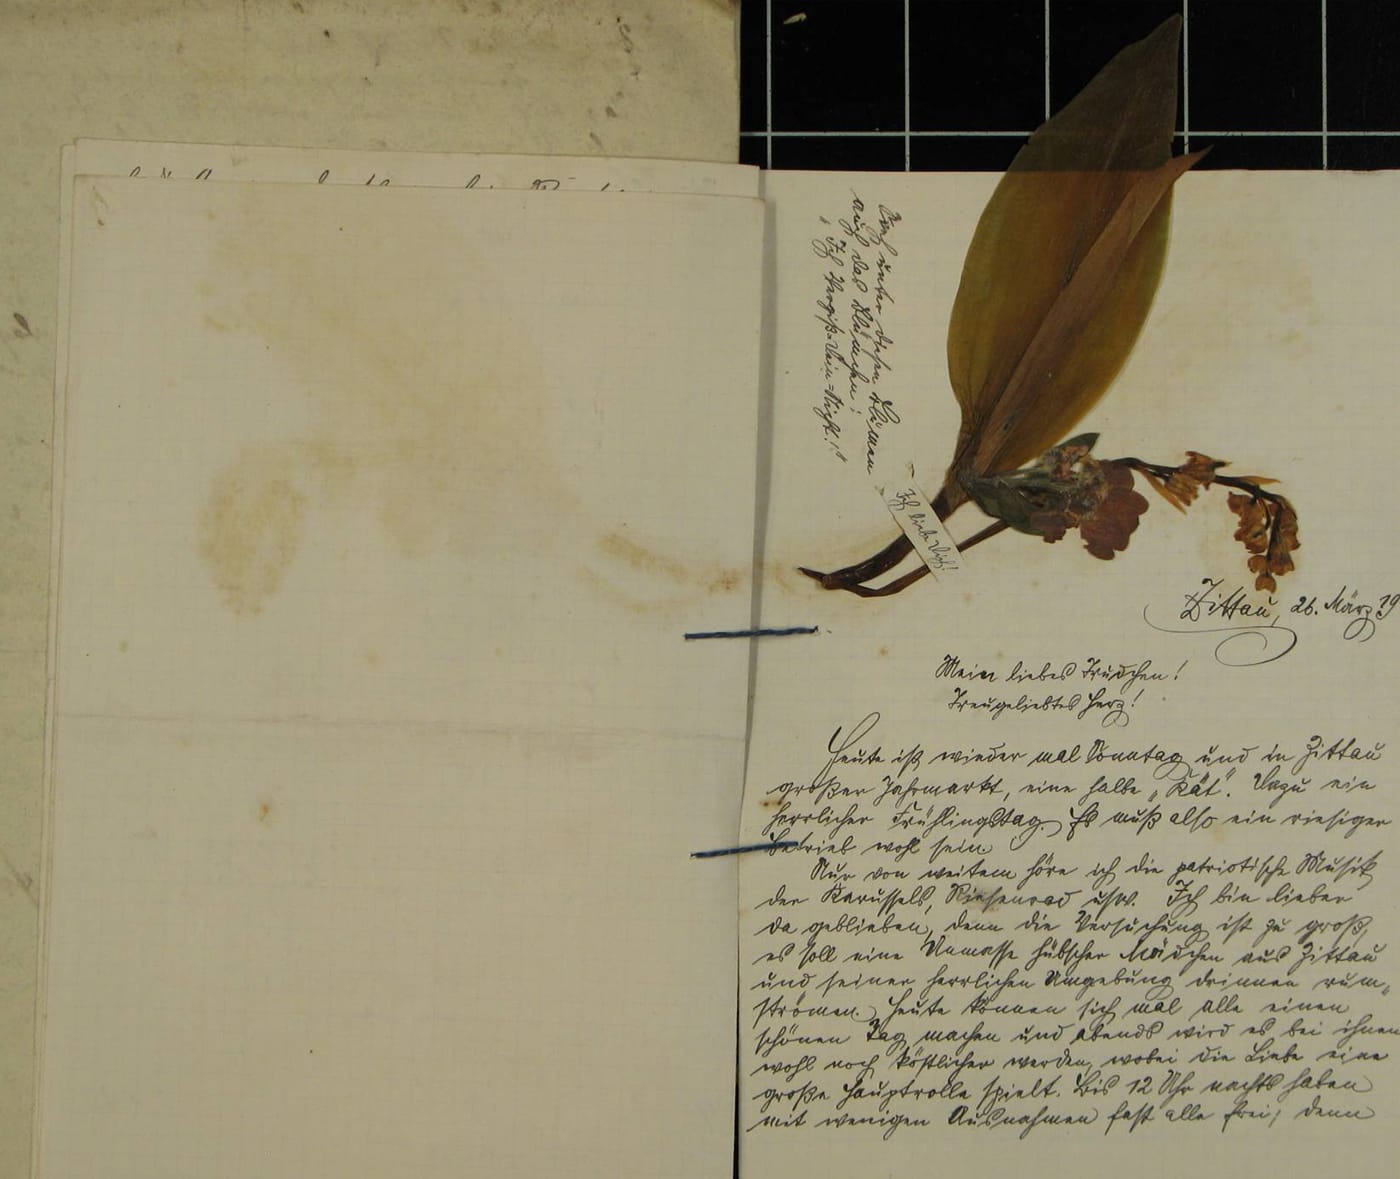 Auch unter diesen Blumen
auch das Blümchen:
"Ich Vergiß=Dein=Nicht!"
Ich liebe Dich!
Zittau, 26. März 19
Mein liebes Trudchen!
Treugeliebtes Herz!
Heute ist wieder mal Sonntag und in Zittau
großer Jahrmarkt, eine halbe „Kät“. Dazu ein
herrlicher Frühlingstag. Es muß also ein riesiger
Betrieb wohl sein.
Nur von weitem höre ich die patriotische Musik
der Karussels, Riesenrad usw. Ich bin lieber
da geblieben, denn die Versuchung ist zu groß,
es soll eine Unmasse hübscher Mädchen aus Zittau
und seiner herrlichen Umgebung drinnen rum-
strömen. Heute können sich mal alle einen
schönen Tag machen und abends wird es bei ihnen
wohl noch köstlicher werden, wobei die Liebe eine
große Hauptrolle spielt. Bis 12 Uhr nachts haben
mit wenigen Ausnahmen fast alle frei; denn